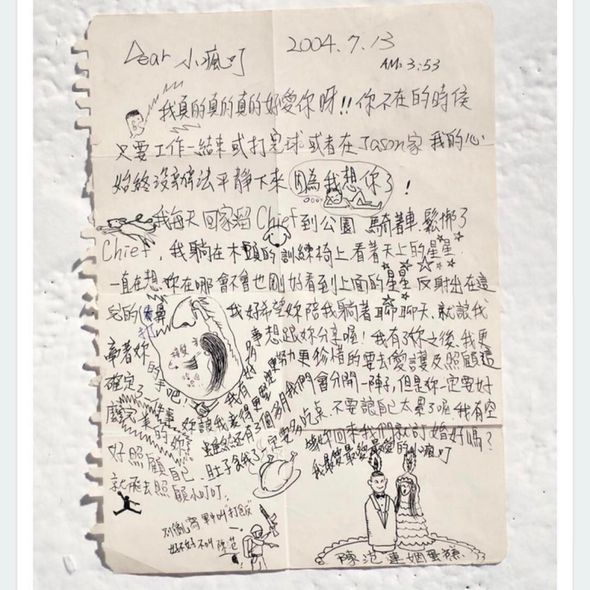 Dear 小瘋可 2004.7.13
AM: 3:53
我真的真的真的好愛你呀!! 你不在的時候
只要工作一結束或打完球或者在Jason家 我的心
始終沒辦法平靜下來 因為我想你了!
我每天回家溜Chief到公園 騎著車,鬆綁了
Chief, 我躺在木頭的訓練椅上看著天上的星星.
一直在想,妳在哪會不會也剛好看到上面的星星反射出在這
兒的 我好希望妳陪我躺著聊聊天.就讓我
牽著妳的手吧! 我有好多事想跟妳分享喔! 我有了妳之後,我更
確定了一件事 妳讓我變得更堅定更努力更珍惜的要去愛護及照顧這
雖然還有3個月我們會分開一陣子,但是妳一定要好
好照顧自己. 肚子餓了一定要多吃點.不要讓自己太累了喔.我有空
就飛去照顧小可可.
等妳回來我們就訂婚好嗎?
我最愛最愛最愛的小瘋可
好不好不叫陳范
陳范連姻蛋糕